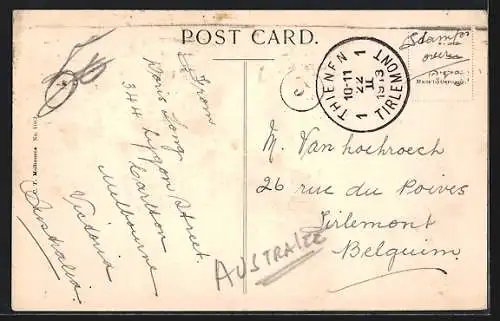 POST CARD.
From
Doris Long
344 Lygon Street.
Carlton
Melbourne
Victoria
Australia.
J. Melbourne No.
THIENEN 1 TIRLEMONT 1
10-11
22
II
1913
Stamp
M. Van
26 rue du Poives
Tirlemont
Belguim.
AUSTRALIE